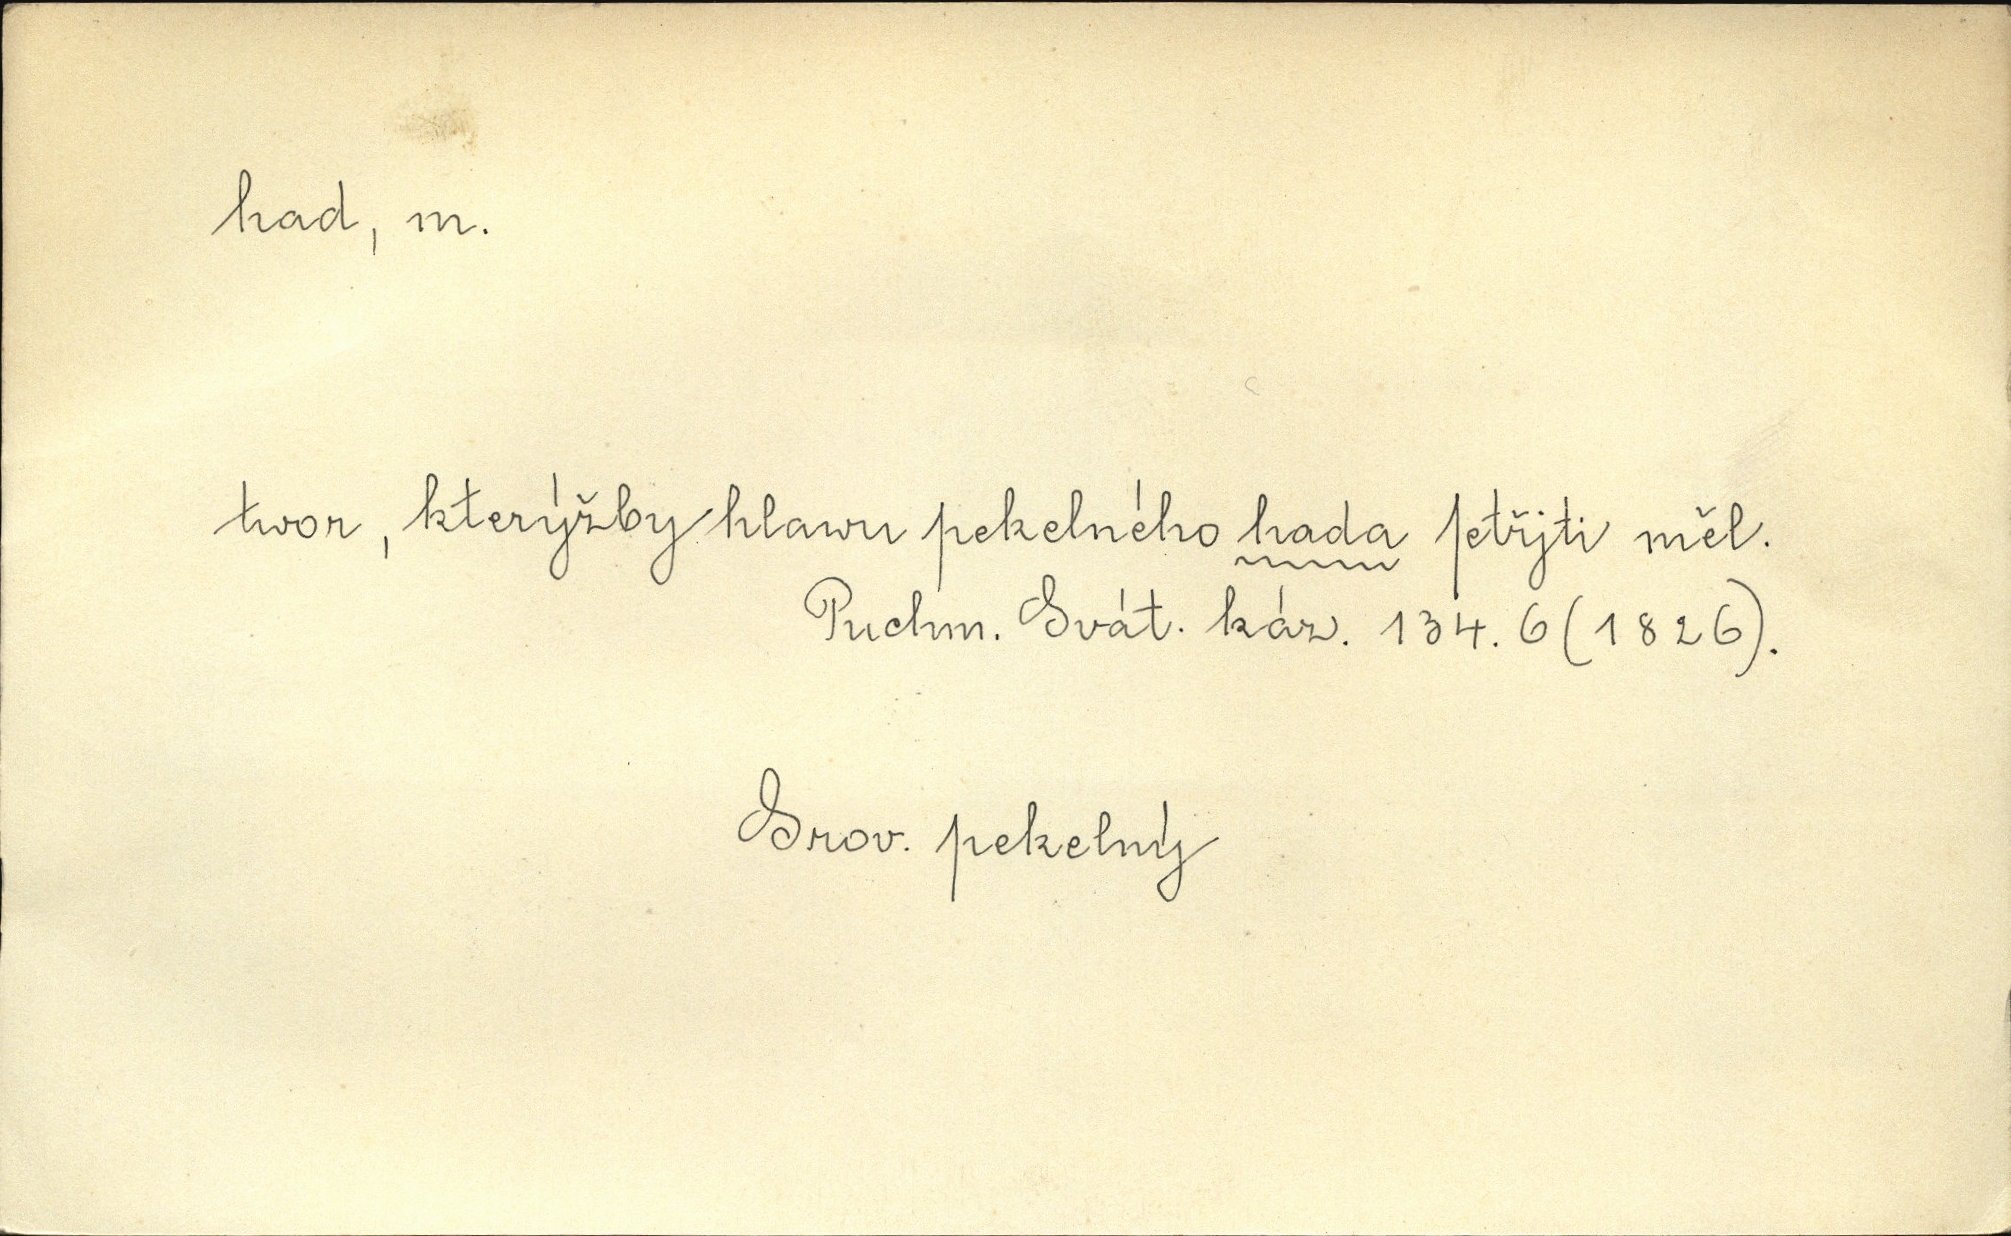 had, m.
twor, kterýžby hlawu pekelného hada ſetřjti měl.
Puchm. Svát. káz. 134. 6 (1826).
Srov. pekelný